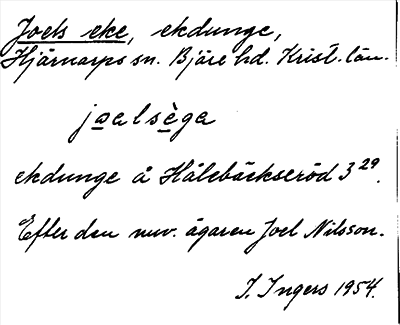 Joels eke, ekdunge,
Hjärnarps sn. Bjäre hd. Krist. län.
joalsèga
ekdunge å Hålebäckseröd 3²⁹.
Efter den nuv. ägaren Joel Nilsson.
I. Ingers 1954.